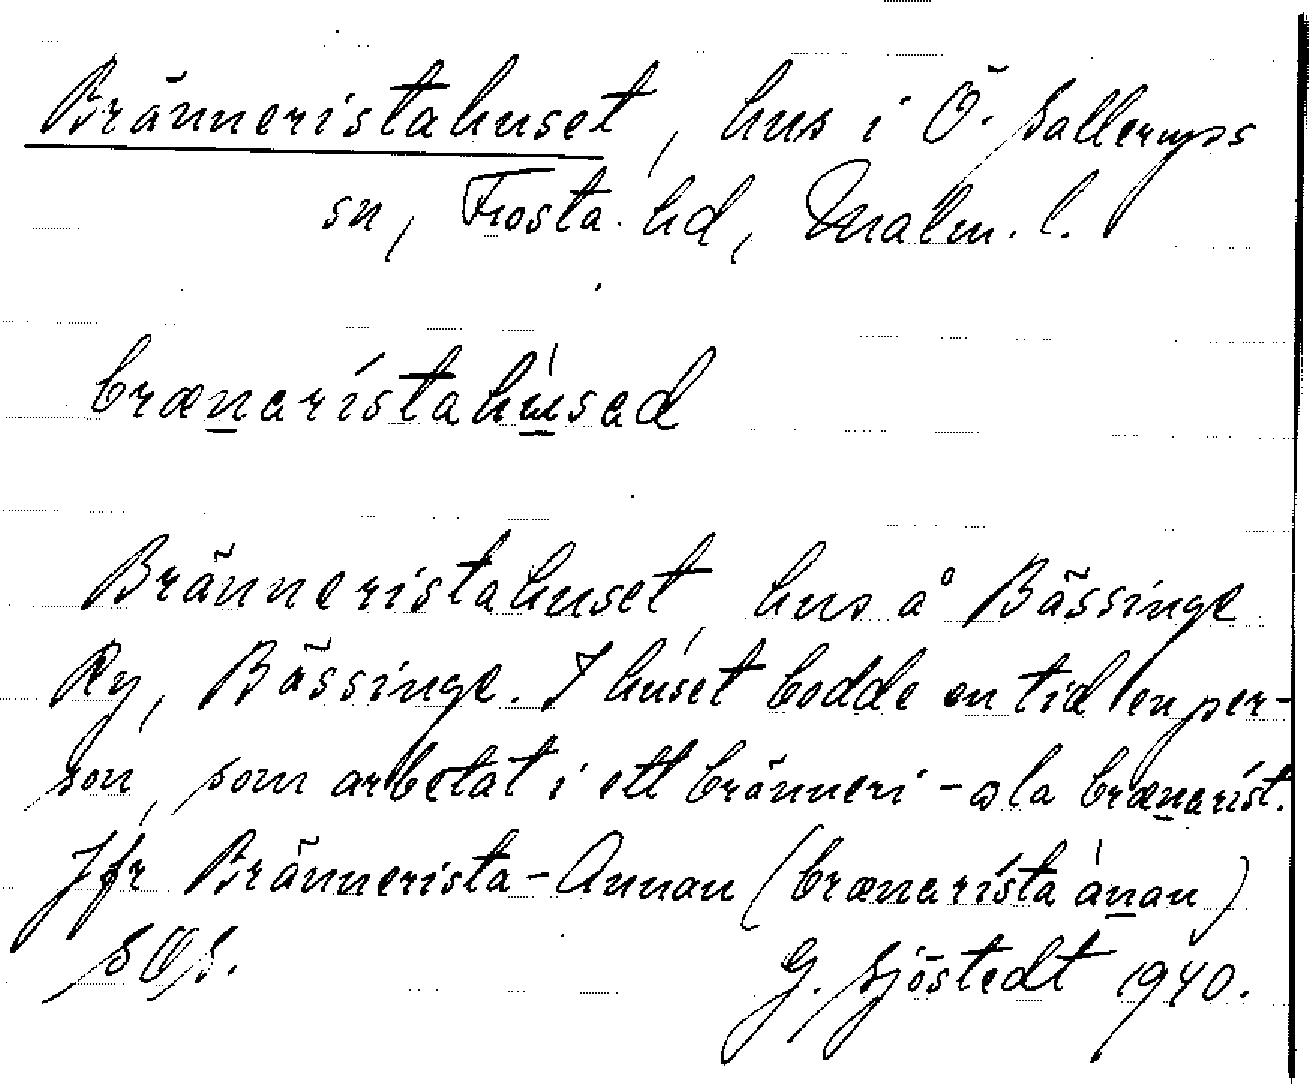 Bränneristahuset, hus i Ö. Sallerups
sn, Frosta hd, Malm. l.
brænarístahu̱sad
Bränneristahuset, hus å Bässinge
Ry, Bässinge. I huset bodde en tid en per-
son, som arbetat i ett bränneri - sla bræṉaríst.
Jfr Brännerista-Annan (brænarísta áṉan)
SOS.
G. Sjöstedt 1940.